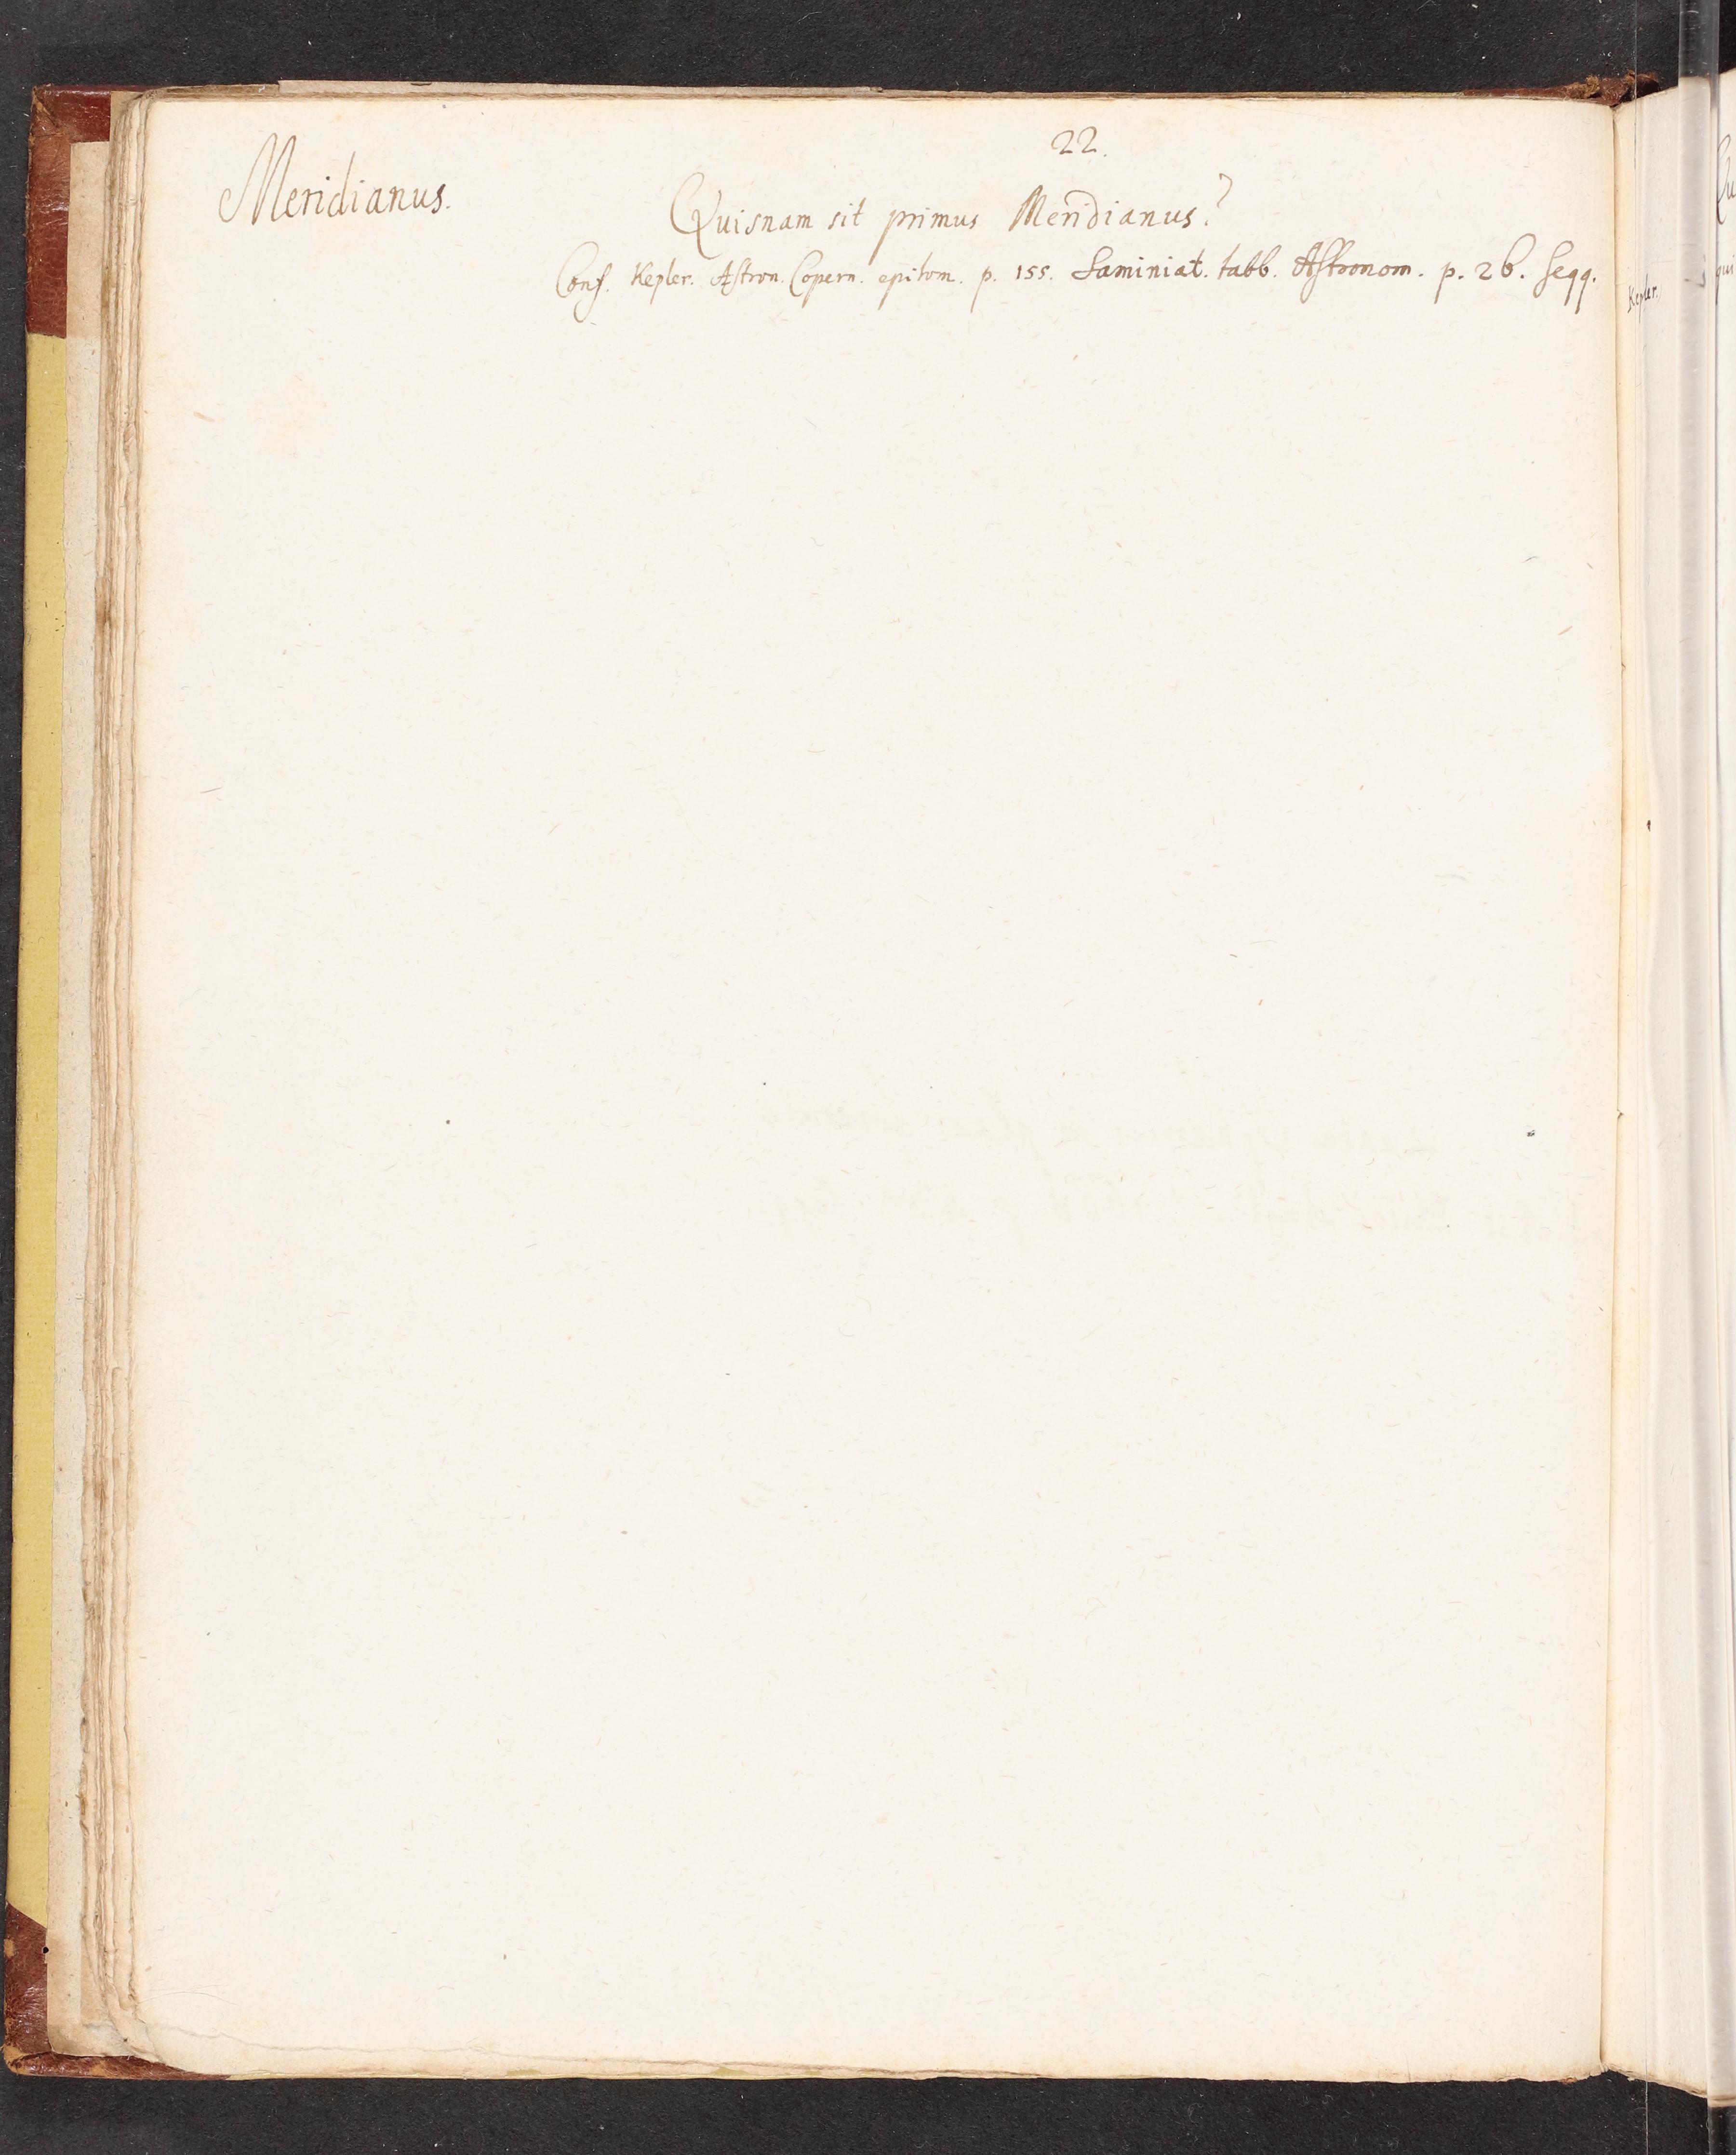 22.
Meridianus.
Quisnam sit primus Meridianus?
Conf. Kepler. Astron. Copern. epitom. p. 155. Laminiat. tabb. Astronom. p. 26. seqq.
Kepler.
Qu
qui